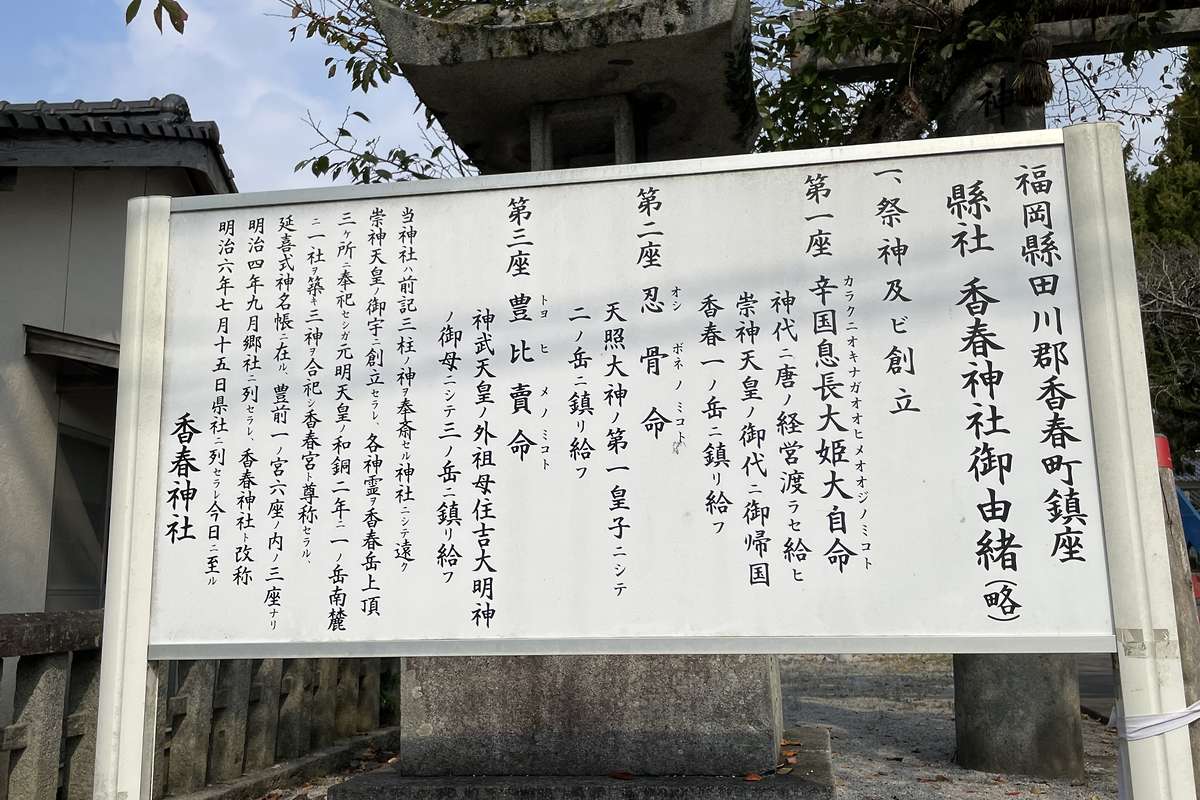 福岡縣田川郡香春町鎮座
縣社 香春神社御由緒(略)
一、祭神及ビ創立
第一座 辛国息長大姫大自命
カラクニオキナガオオヒメオオジノミコト
神代ニ唐ノ経営渡ラセ給ヒ
崇神天皇ノ御代ニ御帰国
香春一ノ岳ニ鎮リ給フ
第二座 忍骨命
オシ ボネノ ミコト
天照大神ノ第一皇子ニシテ
二ノ岳ニ鎮リ給フ
第三座 豊比賣命
トヨ ヒ メノミコト
神武天皇ノ外祖母住吉大明神
ノ御母ニシテ三ノ岳ニ鎮リ給フ
当神社ハ前記三柱ノ神ヲ奉斎セル神社ニシテ遠ク
崇神天皇ノ御宇ニ創立セラレ、各神霊ヲ香春岳上頂
三ヶ所ニ奉祀セシガ元明天皇ノ和銅二年ニ一ノ岳南麓
ニ一社ヲ築キ三神ヲ合祀シ香春宮ト尊称セラル、
延喜式神名帳ニ在ル、豊前一ノ宮六座ノ内ノ三座ナリ
明治四年九月郷社ニ列セラレ、香春神社ト改称
明治六年七月十五日県社ニ列セラレ今日ニ至ル
香春神社
神